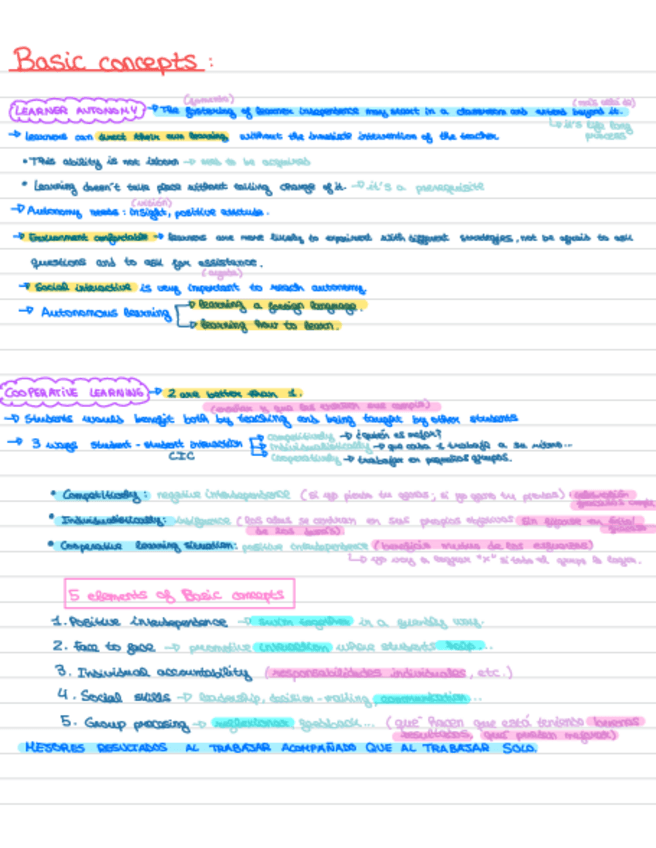 Basic concepts:
(fomento) (más allá de)
LEARNER AUTONOMY → The fostering of learner independence may start in a classroom and extend beyond it.
→ it's life long
→ learners can direct their own learning without the immediate intervention of the teacher. process
• This ability is not inborn → has to be acquired
• Learning doesn't take place without taking charge of it. → it's a prerequisite
(visión)
→ Autonomy needs: insight, positive attitude.
→ Environment comfortable → learners are more likely to experiment with different strategies, not be afraid to ask
questions and to ask for assistance.
(ayuda)
→ Social interactive is very important to reach autonomy.
→ Autonomous learning → learning a foreign language.
→ learning how to learn.
COOPERATIVE LEARNING → 2 are better than 1.
→ Students would benefit both by teaching and being taught by other students
→ 3 ways student-student interaction → Competitically → ¿quién es mejor?
→ Individualistically → que cada 1 trabaja a su ritmo...
CIC → Cooperatively → trabajar en pequeños grupos.
• Competitically: negative interdependence (Si yo pierdo tu ganas; si yo gano tu pierdes)
• Individualistically: indifference (los alos se centran en sus propios objetivos
de los demás)
• Cooperative learning situation: positive interdependence (beneficio mutuo de los esfuerzos)
→ yo voy a lograr "x" si todo el grupo lo logra.
5 elements of Basic concepts
1. Positive interdependence → swim together in a friendly way.
2. Face to face → promotive interaction where students help...
3. Individual accountability (responsabilidades individuales, etc.)
4. Social skills → leadership, decision-making, communication...
5. Group processing → reflexiones, feedback... (qué hacen que está teniendo buenos
resultados, qué pueden mejorar)
MEJORES RESULTADOS AL TRABAJAR ACOMPAÑADO QUE AL TRABAJAR SOLO.